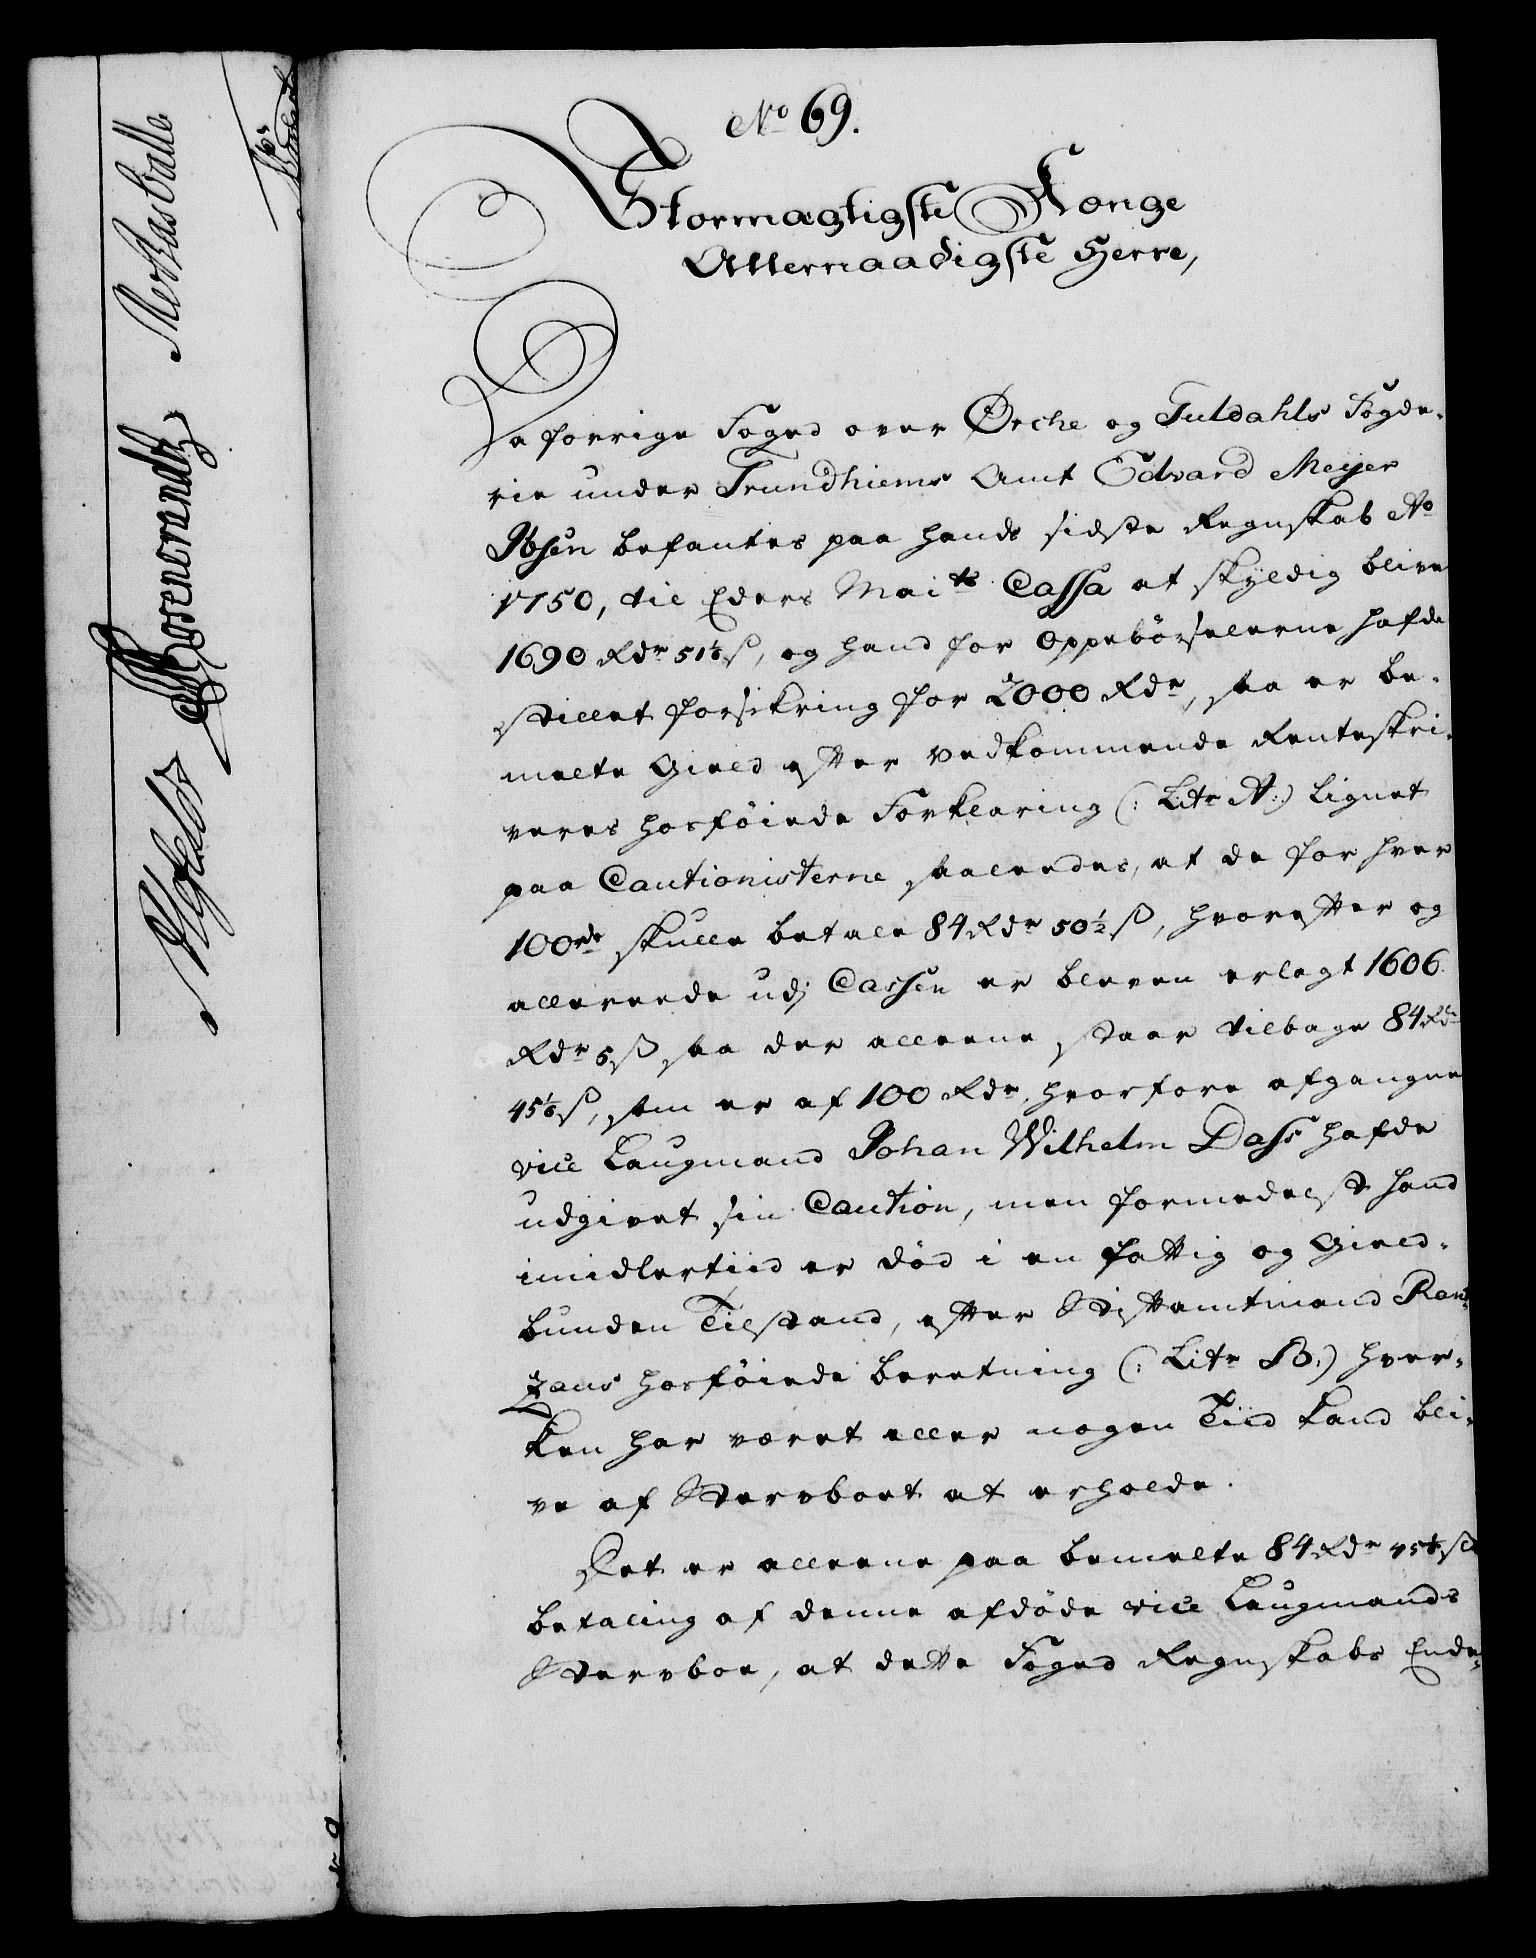 No 69.
Stormægtigste Konge
Allernaadigste Herre,
Da forrige Foged over Ørche og Guldahls Fogde-
rie under Trundhiems Amt Edvard Meyer
Ibsen befantes paa hands sidste Regnskab Ao
1750, til Eders Maits Cassa at skyldig blive
1690 Rdr 51⅙ ß, og hand for Oppebörselerne hafde
stillet forsikring for 2000 Rdr, saa er be-
melte Gield efter vedkommende Renteskri-
veres hosföiede Forklaring (: Litr A:) lignet
paa Cautionisterne saaleedes, at de for hver
100de skulle betale 84 Rdr 50½ ß, hvorefter og
allereede udj Cassen er bleven erlagt 1606.
Rdr 5 ß saa der alleene staar tilbage 84 Rdr
45⅙ ß, som er af 100 Rdr, hvorfore afgangne
vice Laugmand Johan Wilhelm Dass hafde
udgivet sin Caution, men formedelst hand
imidlertiid er död i en fattig og Gield-
bunden Tilstand, efter Stiftamtmand Rant-
zaus hosföiede beretning (: Litr B:) hver-
ken har været eller nogen Tiid kand bli-
ve af Stervboet at erholde.
Det er alleene paa bemelte 84 Rdr 45⅙ ß
betaling af denne afdöde vice Laugmands
Stervboe, at dette Foged Regnskabs Ende-